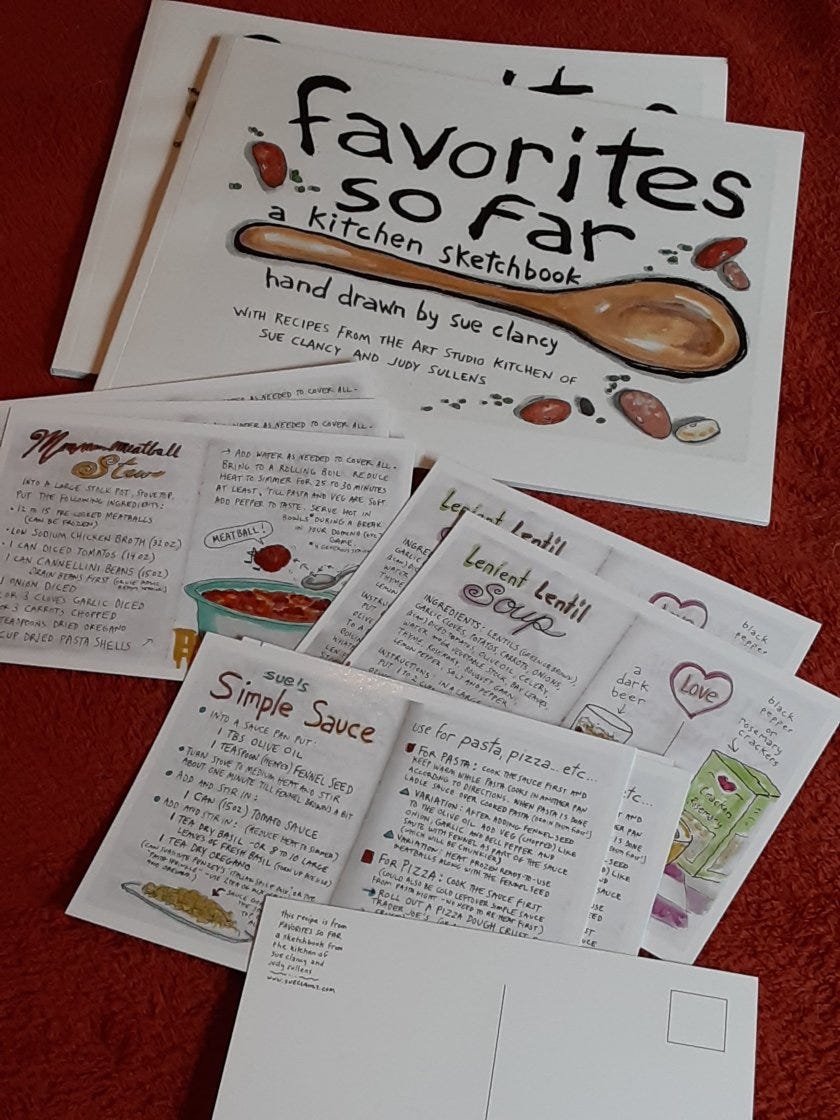 favorites
so far
a kitchen sketchbook
hand drawn by sue clancy
WITH RECIPES FROM THE ART STUDIO KITCHEN OF
SUE CLANCY AND JUDY SULLENS
AS NEEDED TO COVER ALL.
AS NEEDED TO COVER ALL.
Mmmmmeatball
Stew
INTO A LARGE STOCK POT, STOVETOP,
PUT THE FOLLOWING INGREDIENTS:
• 12 to 15 PRE-COOKED MEATBALLS
(CAN BE FROZEN)
• LOW SODIUM CHICKEN BROTH (32 OZ)
• 1 CAN DICED TOMATOS (14 OZ)
1 CAN CANNELLINI BEANS (15 OZ)
DRAIN BEANS FIRST
1 ONION DICED
OR 3 CLOVES GARLIC DICED
OR 3 CARROTS CHOPPED
TEASPOONS DRIED OREGANO
CUP DRIED PASTA SHELLS
→ ADD WATER AS NEEDED TO COVER ALL.
BRING TO A ROLLING BOIL. REDUCE
HEAT TO SIMMER FOR 25 TO 30 MINUTES
AT LEAST, 'TILL PASTA AND VEG ARE SOFT.
ADD PEPPER TO TASTE. SERVE HOT IN
BOWLS* DURING A BREAK
IN YOUR DOMINO (ETC)
GAME.
MEATBALL!
Lenient Lentil
Lenient Lentil
Soup
INGREDIENTS: LENTILS (GREEN OR BROWN),
GARLIC CLOVES, POTATOS, CARROTS, ONIONS,
(1 CAN) DICED TOMATOS, OLIVE OIL, CELERY,
WATER AND/OR VEGETABLE STOCK, BAY LEAVES,
THYME, ROSEMARY, BOUQUET GARNI,
LEMON PEPPER, SALT AND PEPPER.
INSTRUCTIONS: IN A LARGE
PUT 1 TO 2
a
dark
beer
Love
black
pepper
black
pepper
or
rosemary
crackers
Crackers
Rosemary
sue's
Simple Sauce
• INTO A SAUCE PAN PUT:
1 TBS OLIVE OIL
1 TEASPOON (HEAPED) FENNEL SEED
• TURN STOVE TO MEDIUM HEAT AND STIR
ABOUT ONE MINUTE TILL FENNEL BROWNS A BIT
• ADD AND STIR IN:
1 CAN (15 OZ) TOMATO SAUCE
• ADD AND STIR IN: (REDUCE HEAT TO SIMMER)
1 TEA DRY BASIL - OR 8 TO 10 LARGE
LEAVES OF FRESH BASIL
1 TEA DRY OREGANO
use for pasta, pizza... etc...
FOR PASTA: COOK THE SAUCE FIRST AND
KEEP WARM WHILE PASTA COOKS IN ANOTHER PAN
ACCORDING TO DIRECTIONS. WHEN PASTA IS DONE
LADLE SAUCE OVER COOKED PASTA
VARIATION: AFTER ADDING FENNEL SEED
TO THE OLIVE OIL ADD VEG (CHOPPED) LIKE
ONION, GARLIC AND BELL PEPPER AND
SAUTE WITH FENNEL AS PART OF THE SAUCE
(WHICH WILL BE CHUNKIER)
VARIATION: HEAT FROZEN READY-TO-USE
MEATBALLS ALONG WITH THE FENNEL SEED
FOR PIZZA: COOK THE SAUCE FIRST
(COULD ALSO BE COLD LEFTOVER SIMPLE SAUCE
FROM PASTA NIGHT - NO NEED TO RE HEAT FIRST)
→ ROLL OUT A PIZZA DOUGH CRUST
TRADER JOE'S
this recipe is from
FAVORITES SO FAR
a sketchbook from
the kitchen of
sue clancy and
judy sullens
www.sueclancy.com